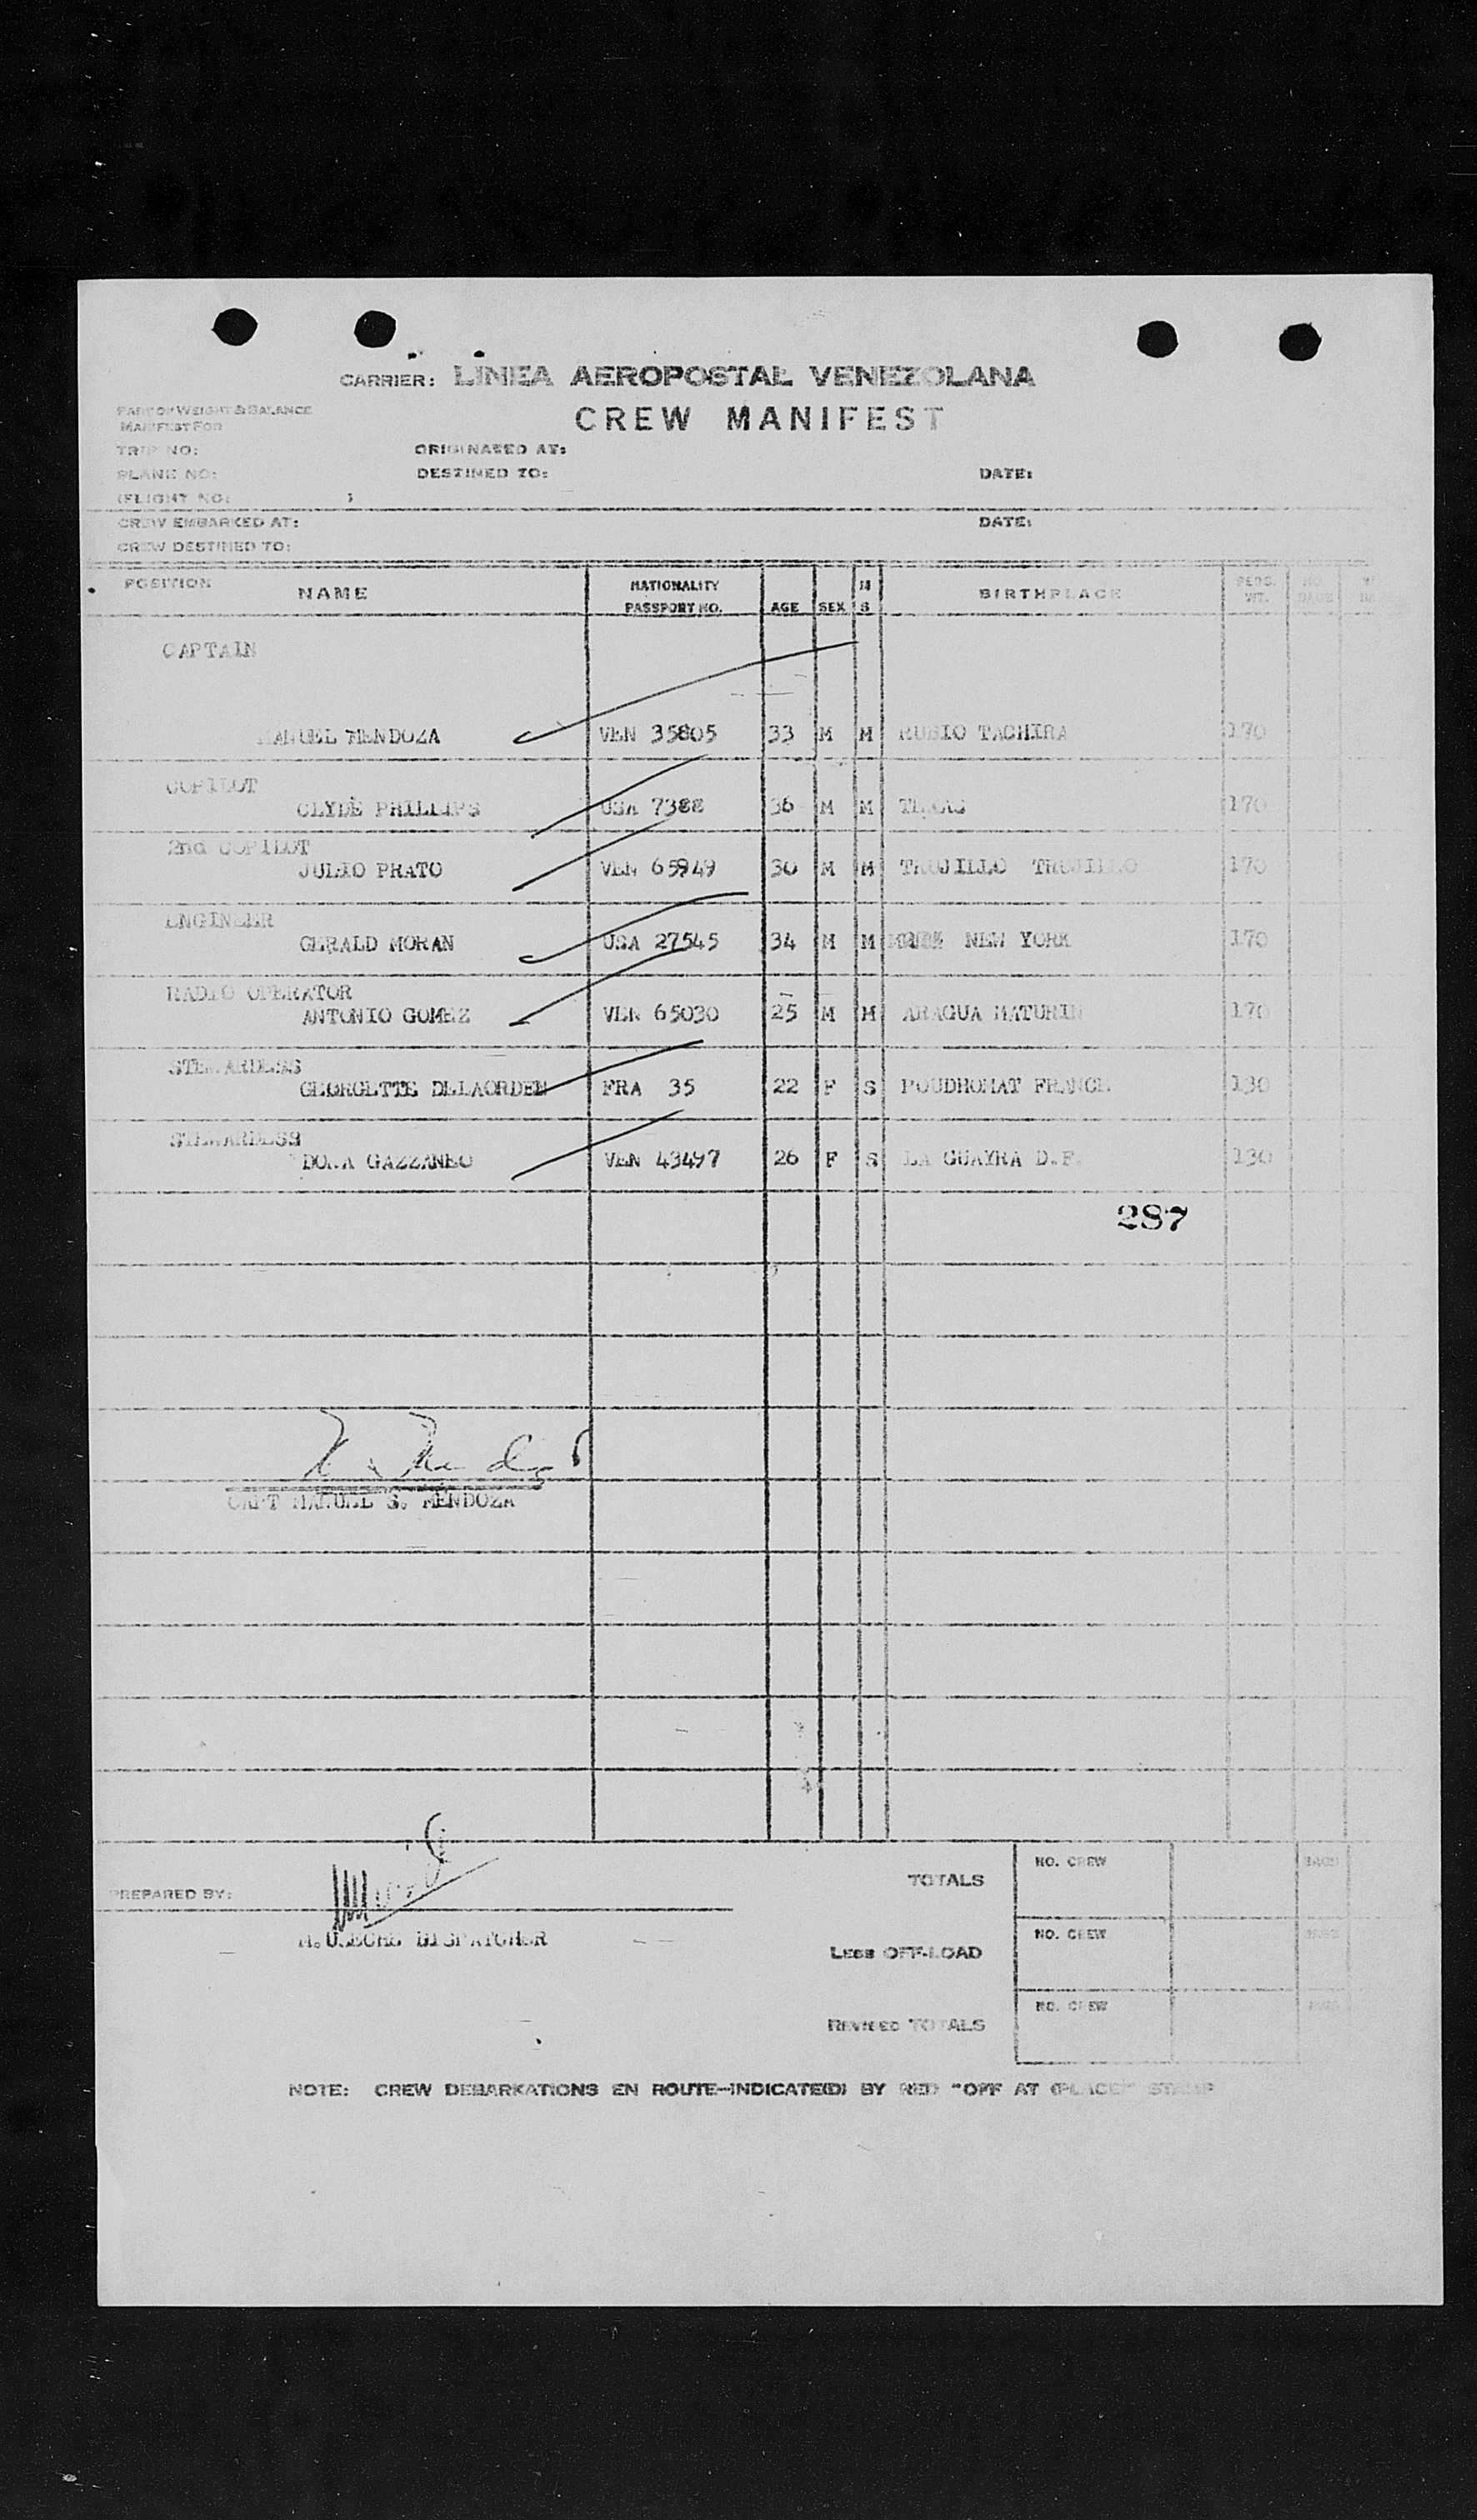 CARRIER: LINEA AEROPOSTAL VENEZOLANA
PART OF WEIGHT & BALANCE
MANIFEST FOR
CREW MANIFEST
TRIP NO: ORIGINATED AT:
PLANE NO: DESTINED TO: DATE:
(FLIGHT NO:
CREW EMBARKED AT: DATE:
CREW DESTINED TO:
POSITION NAME NATIONALITY PASSPORT NO. AGE SEX M S BIRTHPLACE PERS. WT. NO.
CAPTAIN
MANUEL MENDOZA VEN 35805 33 M M RUBIO TACHIRA 170
COPILOT
CLYDE PHILLIPS USA 7388 36 M M TEXAS 170
2nd COPILOT
JULIO PRATO VEN 65949 30 M M TRUJILLO TRUJILLO 170
ENGINEER
GERALD MORAN USA 27545 34 M M NEW YORK 170
RADIO OPERATOR
ANTONIO GOMEZ VEN 65030 25 M M ARAGUA MATURIN 170
STEWARDESS
GEORGETTE DELAORDEN FRA 35 22 F S POUDHOMAT FRANCE 130
STEWARDESS
GAZZANEO VEN 43497 26 F S LA GUAYRA D.F. 130
287
CAPT MANUEL S. MENDOZA
PREPARED BY:
DISPATCHER
TOTALS NO. CREW BAGS
LESS OFF-LOAD NO. CREW BAGS
REVISED TOTALS NO. CREW BAGS
NOTE: CREW DEBARKATIONS EN ROUTE-INDICATE(D) BY RED "OFF AT (PLACE)" STAMP